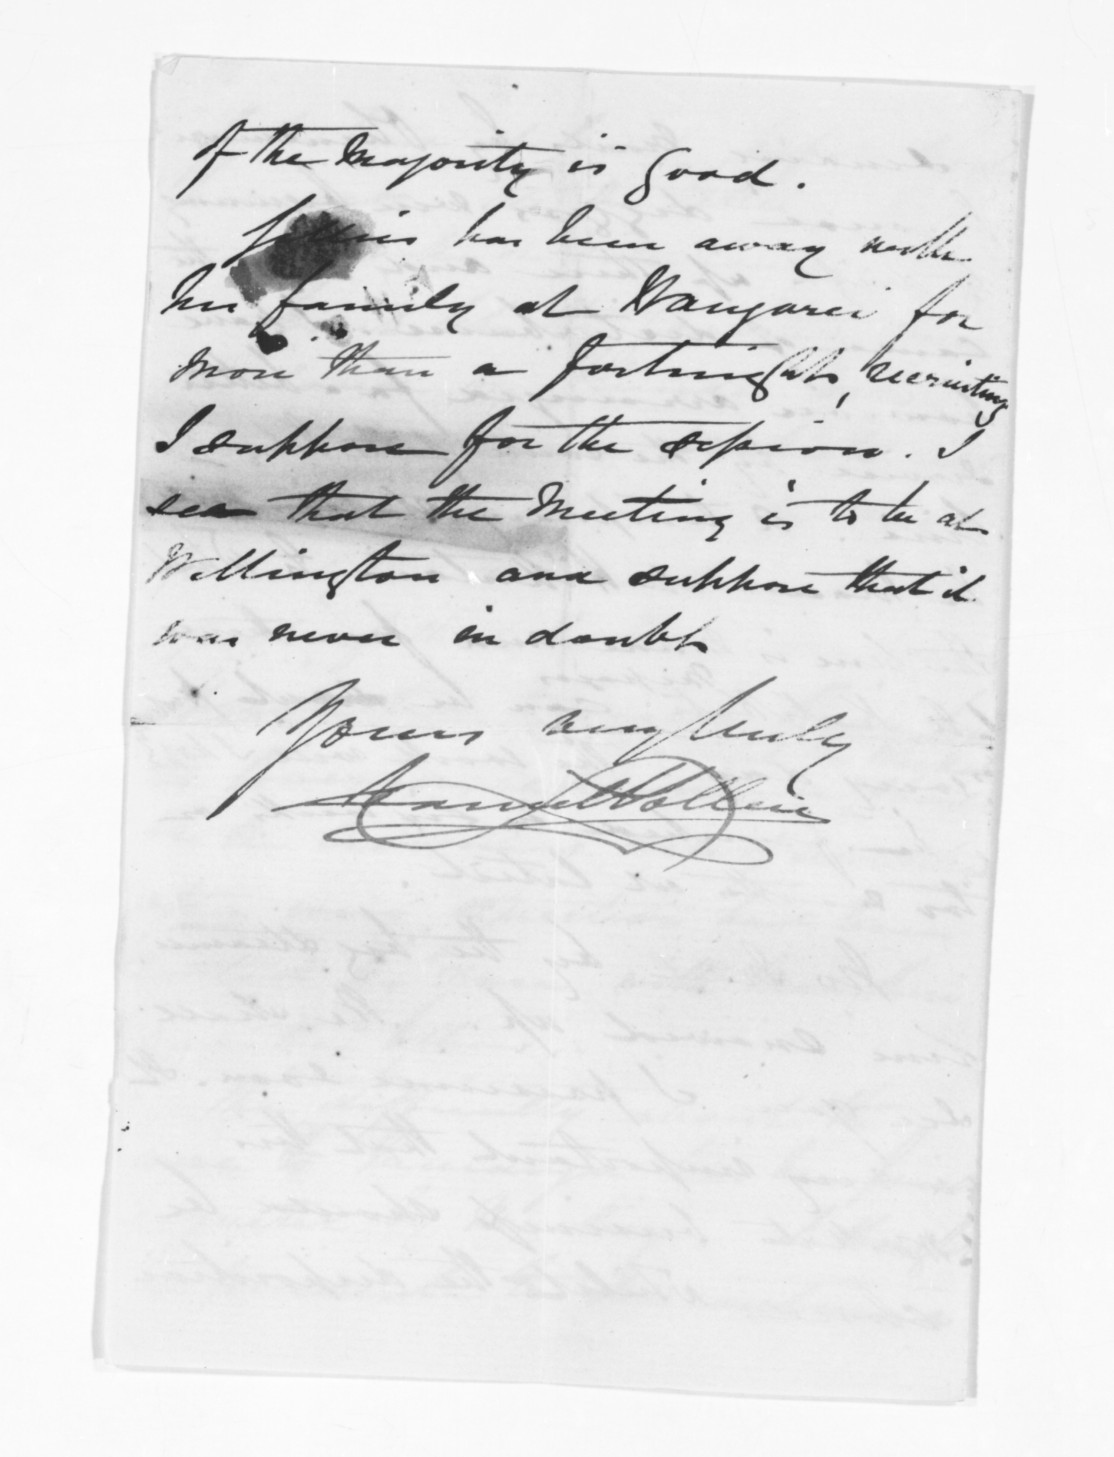 of the Majority is good.
Gillies has been away with
his family at Wangarei for
more than a fortnight, recruiting
I suppose for the session. I
see that the Meeting is to be at
Wellington and suppose that it
was never in doubt
Yours very truly
Daniel Pollen